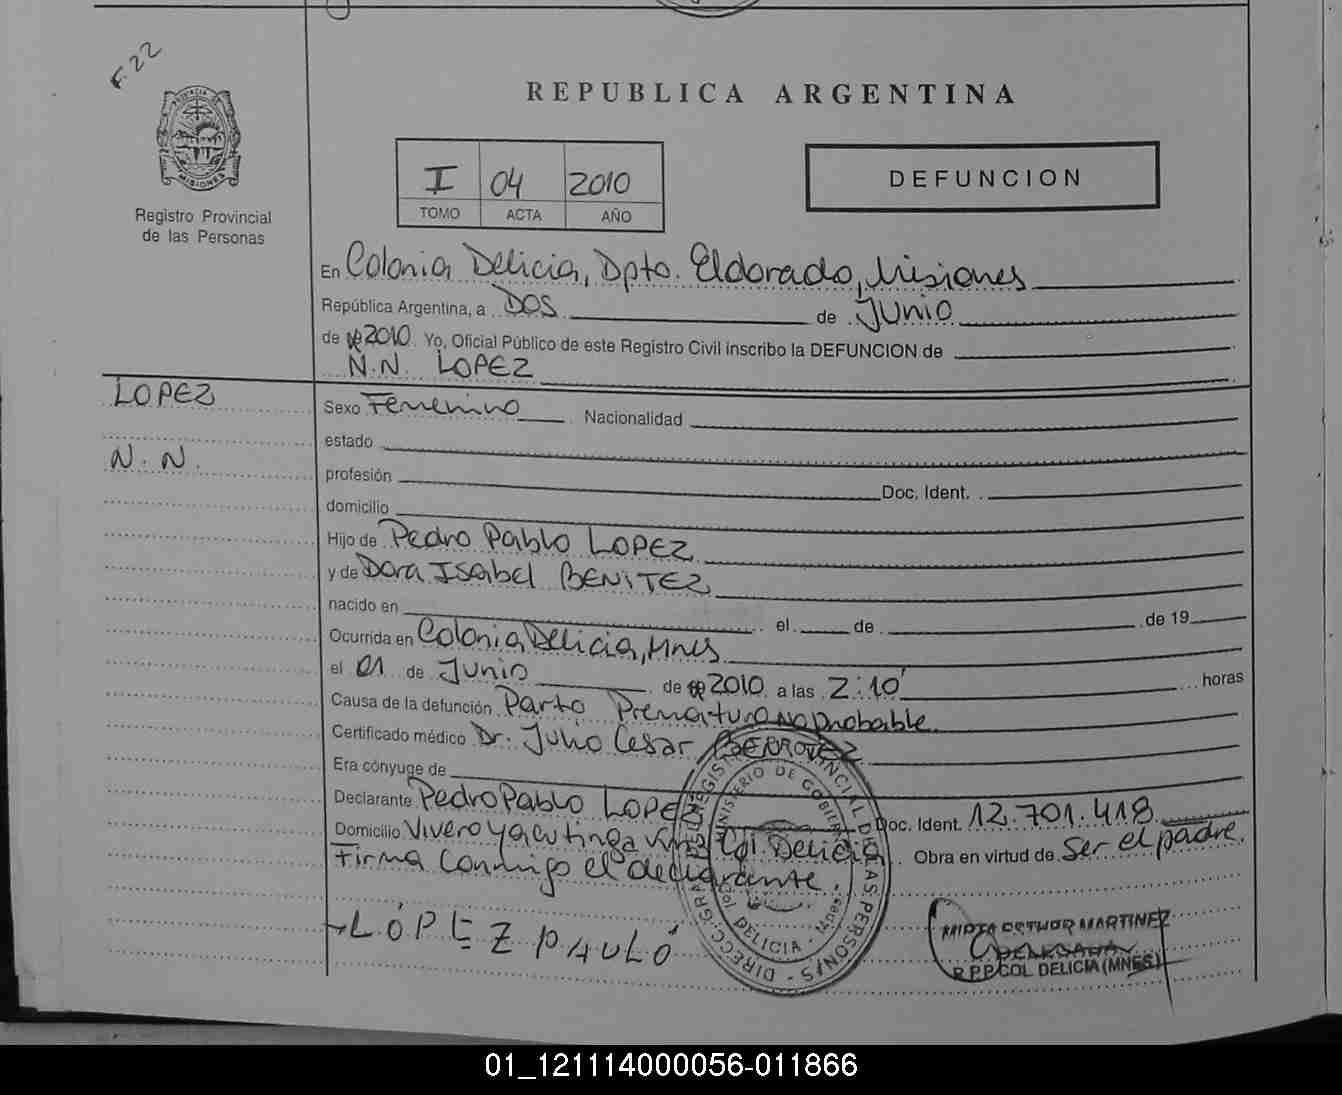 F. 22
REPUBLICA ARGENTINA
PROVINCIA DE
MISIONES
Registro Provincial
de las Personas
I 04 2010
TOMO ACTA AÑO
DEFUNCION
En Colonia Delicia, Dpto. Eldorado, Misiones
República Argentina, a DOS de JUNIO
de 2010. Yo, Oficial Público de este Registro Civil inscribo la DEFUNCION de
N.N. LOPEZ
LOPEZ
N.N.
Sexo Femenino Nacionalidad
estado
profesión Doc. Ident.
domicilio
Hijo de Pedro Pablo LOPEZ
y de Dora Isabel BENITEZ
nacido en el de de 19
Ocurrida en Colonia Delicia, Mnes
el 01 de Junio de 2010 a las 2:10' horas
Causa de la defunción Parto Prematuro No probable
Certificado médico Dr. Julio Cesar
Era cónyuge de
Declarante Pedro Pablo LOPEZ Doc. Ident. 12.701.418
Domicilio Vivero yacutinga Col. Delicia Obra en virtud de Ser el padre.
Firma Conmigo el declarante.
LÓPEZ PAULÓ
MIRTA ESTHER MARTINEZ
DELEGADA
R.P.P COL. DELICIA (MNES)
01_121114000056-011866